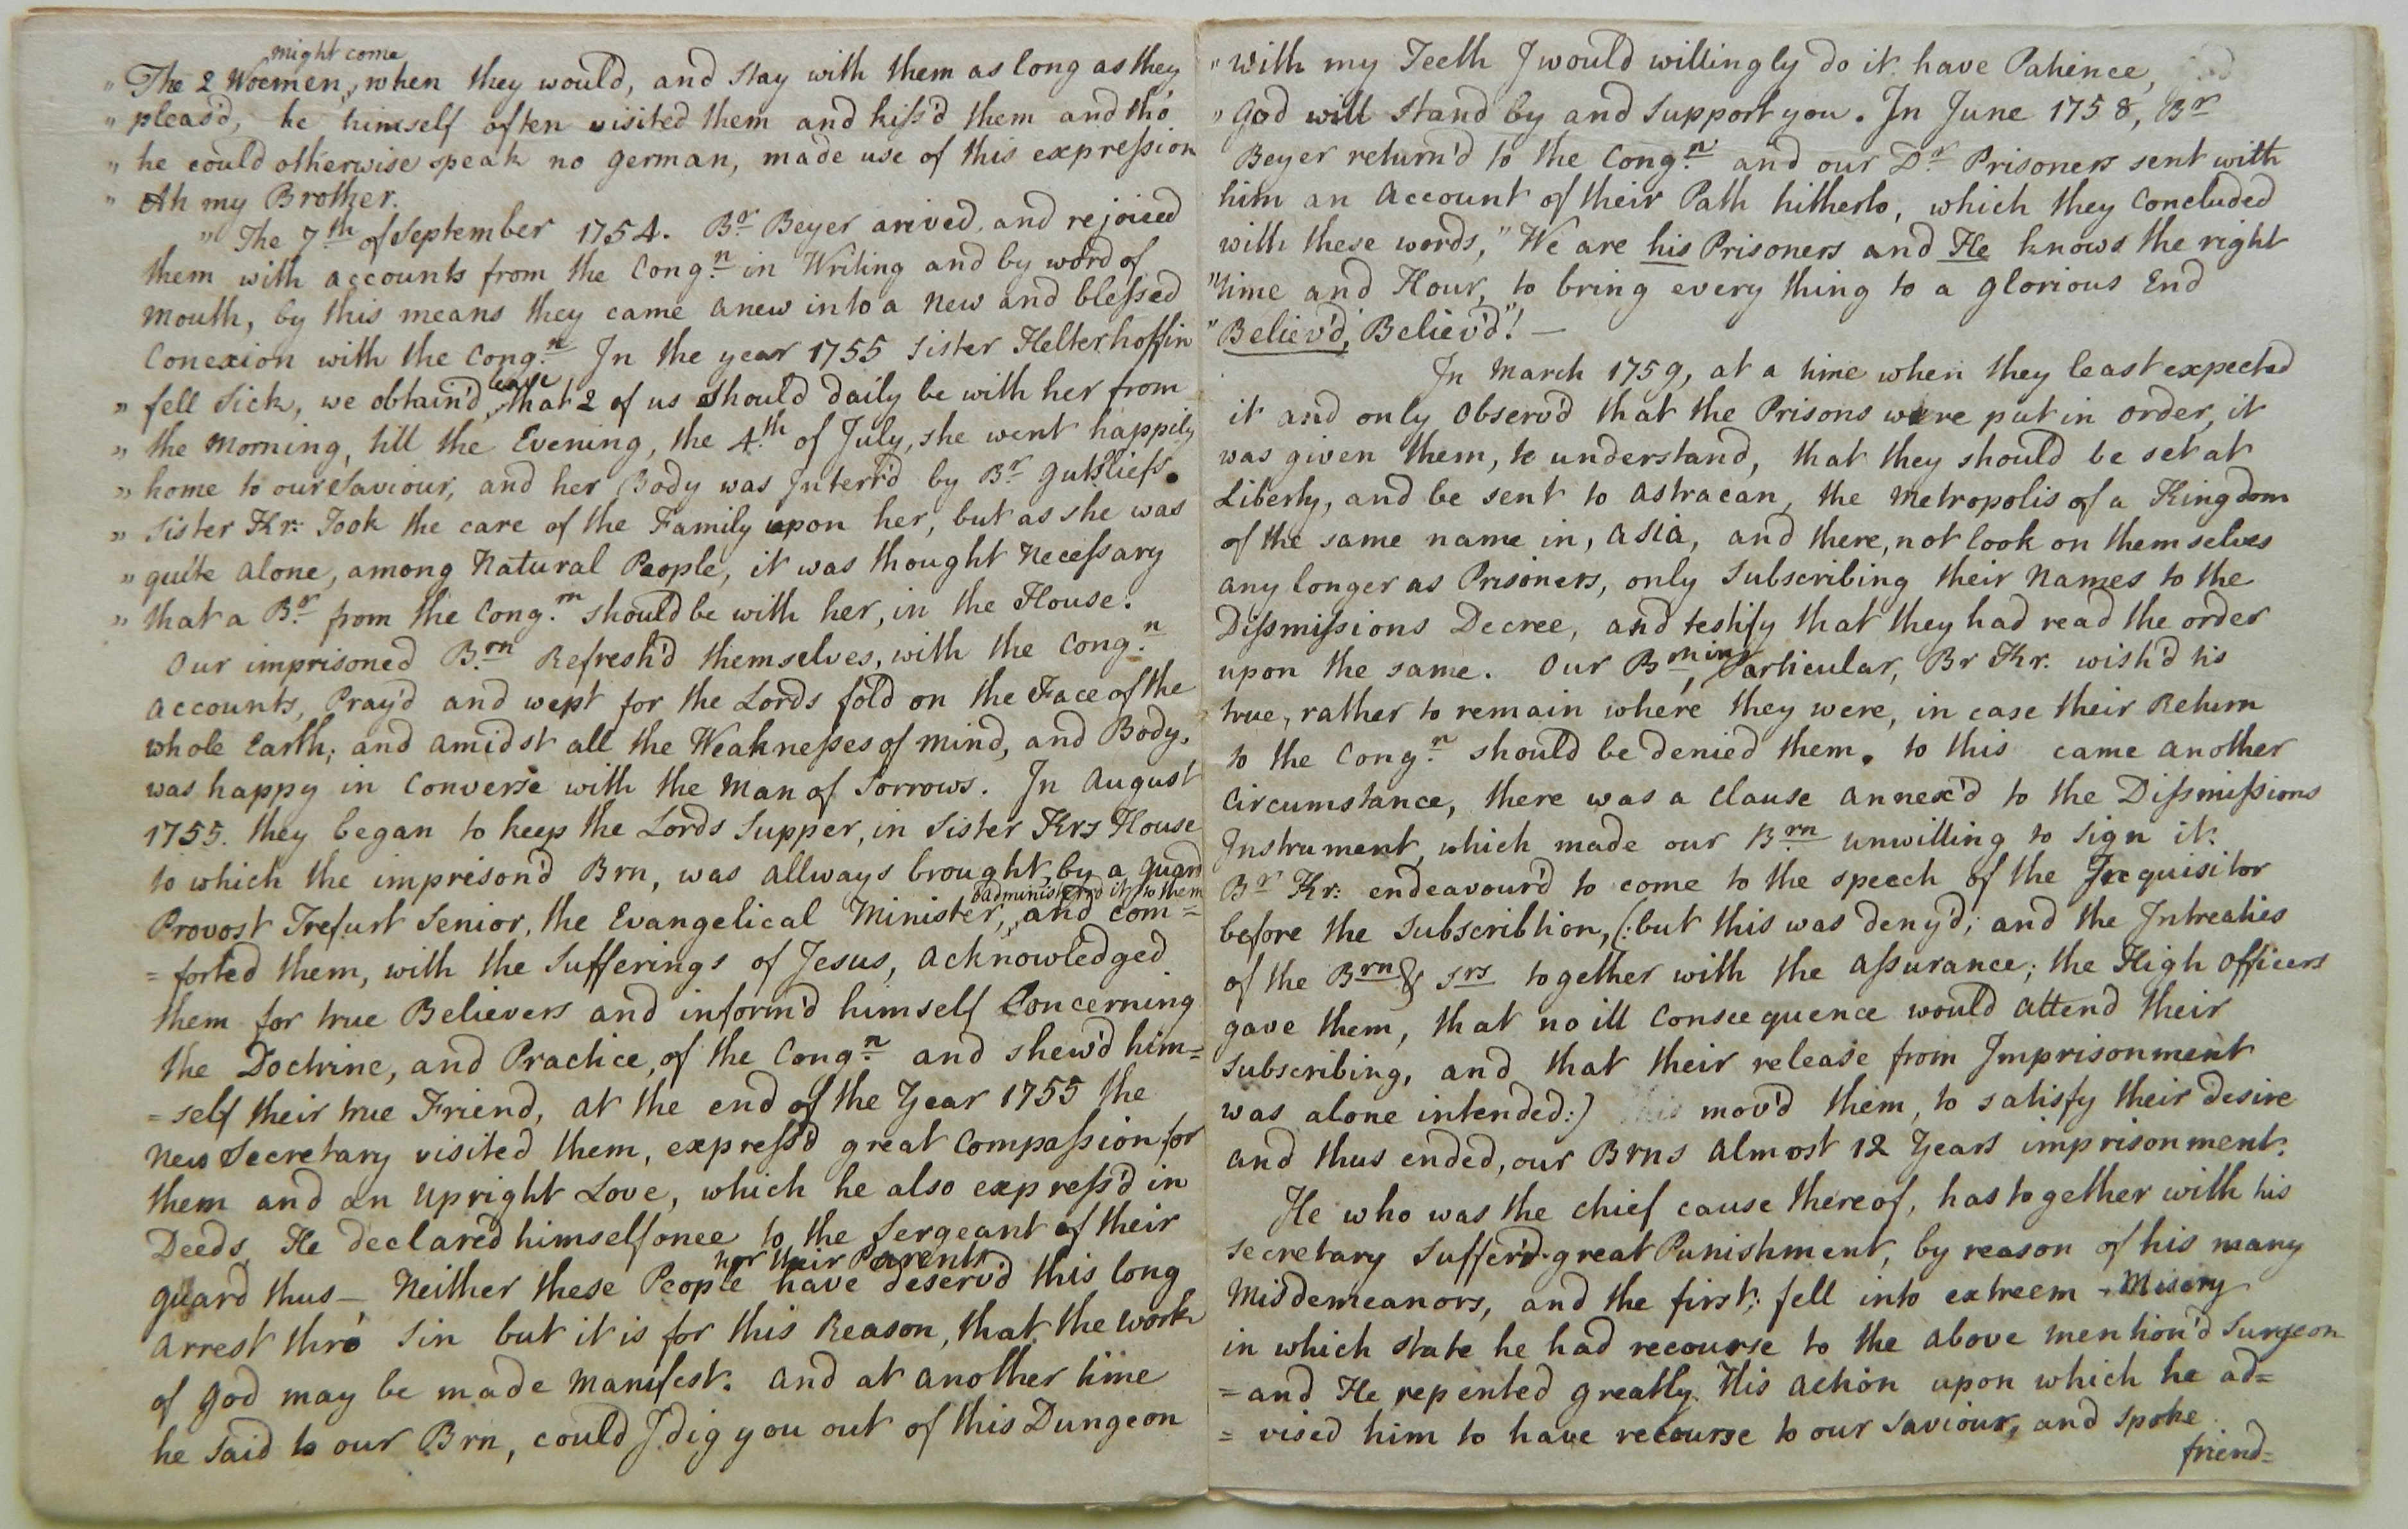 might come
" The 2 Woemen, when they would, and stay with them as long as they
" pleas'd, he himself often visited them and kiss'd them and tho'
" he could otherwise speak no german, made use of this expression
" Ah my Brother.
" The 7th of September 1754. Br. Beyer arived, and rejoiced
them with accounts from the Cong.n in Writing and by word of
mouth, by this means they came anew into a new and blessed
Conexion with the Cong.n In the year 1755 Sister Helterhoffin
leave
" fell sick, we obtain'd, that 2 of us should daily be with her from
" the Morning, till the Evening, the 4.th of July, she went happily
" home to our Saviour, and her Body was Interr'd by Br Gutsliefs.
" Sister Kr: Took the care of the Family upon her, but as she was
" quite alone, among Natural People, it was thought Necessary
" that a Br. from the Cong.n should be with her, in the House.
Our imprisoned B.rn Refresh'd themselves, with the Cong.n
accounts, Pray'd and wept for the Lords fold on the Face of the
whole Earth; and amidst all the Weaknesses of mind, and Body,
was happy in Converse with the Man of Sorrows. In August
1755. they began to keep the Lords Supper, in Sister Krs House
to which the imprison'd Brn, was allways brought, by a guard
administred it to them
Provost Trefurt Senior, the Evangelical Minister, and com=
= forted them, with the Sufferings of Jesus, acknowledged
them for true Believers and inform'd himself Concerning
the Doctrine, and Practice, of the Cong.n and shew'd him=
= self their true Friend, at the end of the Year 1755 the
New Secretary visited them, express'd great Compassion for
them and an upright Love, which he also express'd in
Deeds, He declared himself once to the Sergeant of their
nor their Parents
guard thus — Neither these People have deserv'd this long
arrest thro' Sin but it is for this Reason, that the work
of God may be made Manifest: and at another time
he said to our Brn, could I dig you out of this Dungeon
" With my Teeth I would willingly do it have Patience,
" God will stand by and Support you. In June 1758, Br
Beyer return'd to the Cong.n and our Dr. Prisoners sent with
him an account of their Path hitherto, which they Concluded
with these words, " We are his Prisoners and He knows the right
" time and Hour, to bring every thing to a glorious End
" Believ'd, Believ'd"! —
In March 1759, at a time when they least expected
it and only Observ'd that the Prisons were put in order, it
was given them, to understand, that they should be set at
Liberty, and be sent to Astracan, the Metropolis of a Kingdom
of the same name in, Asia, and there, not look on themselves
any longer as Prisoners, only Subscribing their Names to the
Dissmissions Decree, and testify that they had read the order
upon the same. Our Brn, in Particular, Br Kr. wish'd tis
true, rather to remain where they were, in case their Return
to the Cong.n should be denied them. to this came another
Circumstance, there was a Clause annex'd to the Dissmissions
Instrument, which made our B.rn unwilling to sign it:
Br Kr: endeavour'd to come to the speech of the Inquisitor
before the Subscribtion, (: but this was deny'd; and the Intreaties
of the Brn & Srs together with the assurance; the High Officers
gave them, that no ill Conseequence would attend their
Subscribing, and that their release from Imprisonment
was alone intended:) this mov'd them, to satisfy their desire
and thus ended, our Brns almost 12 Years imprisonment.
He who was the chief cause thereof, has together with his
secretary Suffer'd great Punishment, by reason of his many
Misdemeanors, and the first; fell into extreem Misery
in which state he had recourse to the above mention'd Surgeon
= and He repented greatly His action upon which he ad=
= vised him to have recourse to our Saviour, and spoke
friend=